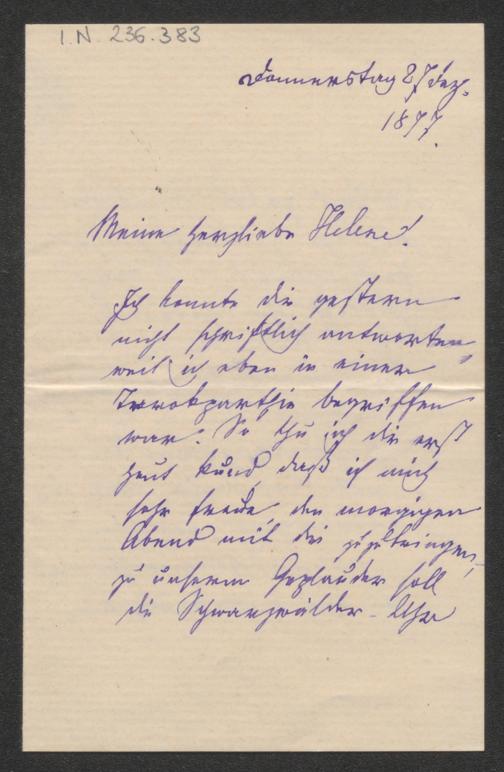 I.N. 236.383
Donnerstag 27 Dez.
1877.
Meine herzliebe Helene!
Ich konnte dir gestern
nicht schriftlich antworten
weil ich eben in einer
Tarokparthie begriffen
war. So thu ich dir erst
heut kund, daß ich mich
sehr freue, den morgigen
Abend mit dir zuzubringen,
zu unserem Geplauder soll
die Schwarzwälder-Uhr